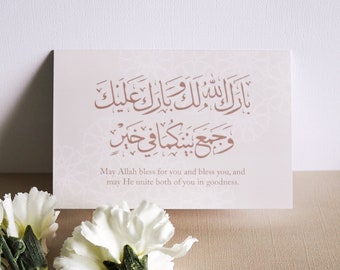 بَارَكَ اللهُ لَكَ وَبَارَكَ عَلَيْكَ
وَجَمَعَ بَيْنَكُمَا فِي خَيْرٍ
May Allah bless for you and bless you, and
may He unite both of you in goodness.